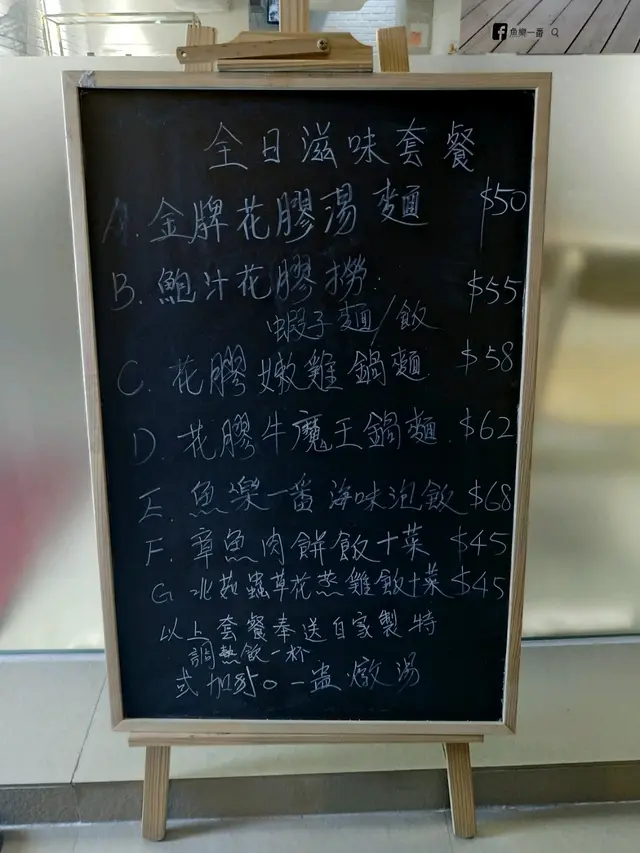 魚樂一番
全日滋味套餐
A. 金牌花膠湯麵 $50
B. 鮑汁花膠撈: $55
蝦子麵/飯
C. 花膠嫩雞鍋麵 $58
D. 花膠牛魔王鍋麵 $62
E. 魚樂一番海味泡飯 $68
F. 章魚肉餅飯+菜 $45
G 北菇蟲草花蒸雞飯+菜 $45
以上套餐奉送自家製特
調熱飲一杯
或加 一盅燉湯